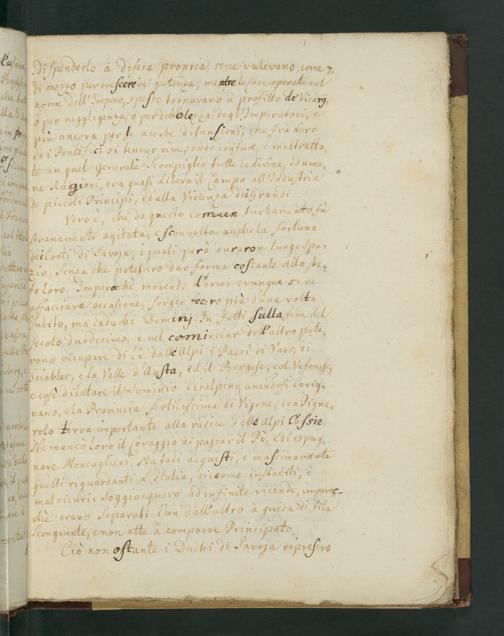 di spenderlo à difesa propria, se ne valevano, come 7.
di mezzo per crescere in potenza, mentre le cose operate col
nome dell'Impero, spesso tornavano à profitto de' Vicarj,
ò per negligenza, ò per debolezza degl'Imperatori, e
più ancora per l'acerbe dissensioni, che frà loro
ed i Pontefici si tennero vive, onde confuse, e maltratta-
te in quel Generale Scompiglio tutte le divine, ed uma-
ne Ragioni, era quasi libero il Campo all'Industria
de piccoli Principi, ed alla Violenza dei Grandi.
Vero è, che da questo comun turbamento fù
stranamente agitata, e sconvolta anche la fortuna
dei Conti di Savoja, i quali però durarono lungo Spa-
zio, senza che potessero dar forma costante allo sta-
to loro. Imperochè movendo l'armi ovunque se ne
affacciava occasione, fecero più d'una volta
subito, ma caduchi Dominj. In fatti sulla fine del
secolo duodecimo, e nel cominciar dell'altro pote-
rono occupare di là dall'Alpi i Paesi di Vaux, di
Sciables, e la Valle d'Aosta, ed il Bugese, col
e così dilatare il Dominio Cisalpino, unendosi Carig-
nano, e la Provincia fertilissima di Vigone, con Pigna-
rolo terra importante alla radice delle Alpi Cossie.
Ne mancò loro il Coraggio di passar il Pò, e di espug-
nare Moncaglieri. Ma tali acquisti, e massimamente
quelli riguardanti l'Italia, siccome instabili, e
mal sicuri soggiacquero ad infinite vicende, imper-
chè erano Separati l'un dall'altro à guisa di fila
scongiunte, e non atte à comporre Principato.
Ciò non ostante i Duchi di Savoja ripresero